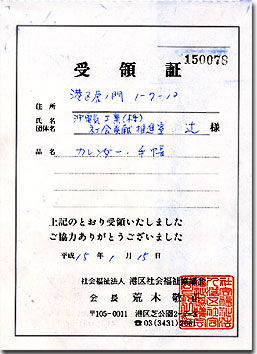 受領証
150078
住所 港区虎ノ門 1-7-12
氏名
団体名 沖電気工業(株)
社会貢献推進室 辻 様
品名 カレンダー・手帳
上記のとおり受領いたしました
ご協力ありがとうございました
平成 15 年 1 月 15 日
社会福祉法人 港区社会福祉協議会
会長 荒木
〒105-0011 港区芝公園2-
☎03(3431)